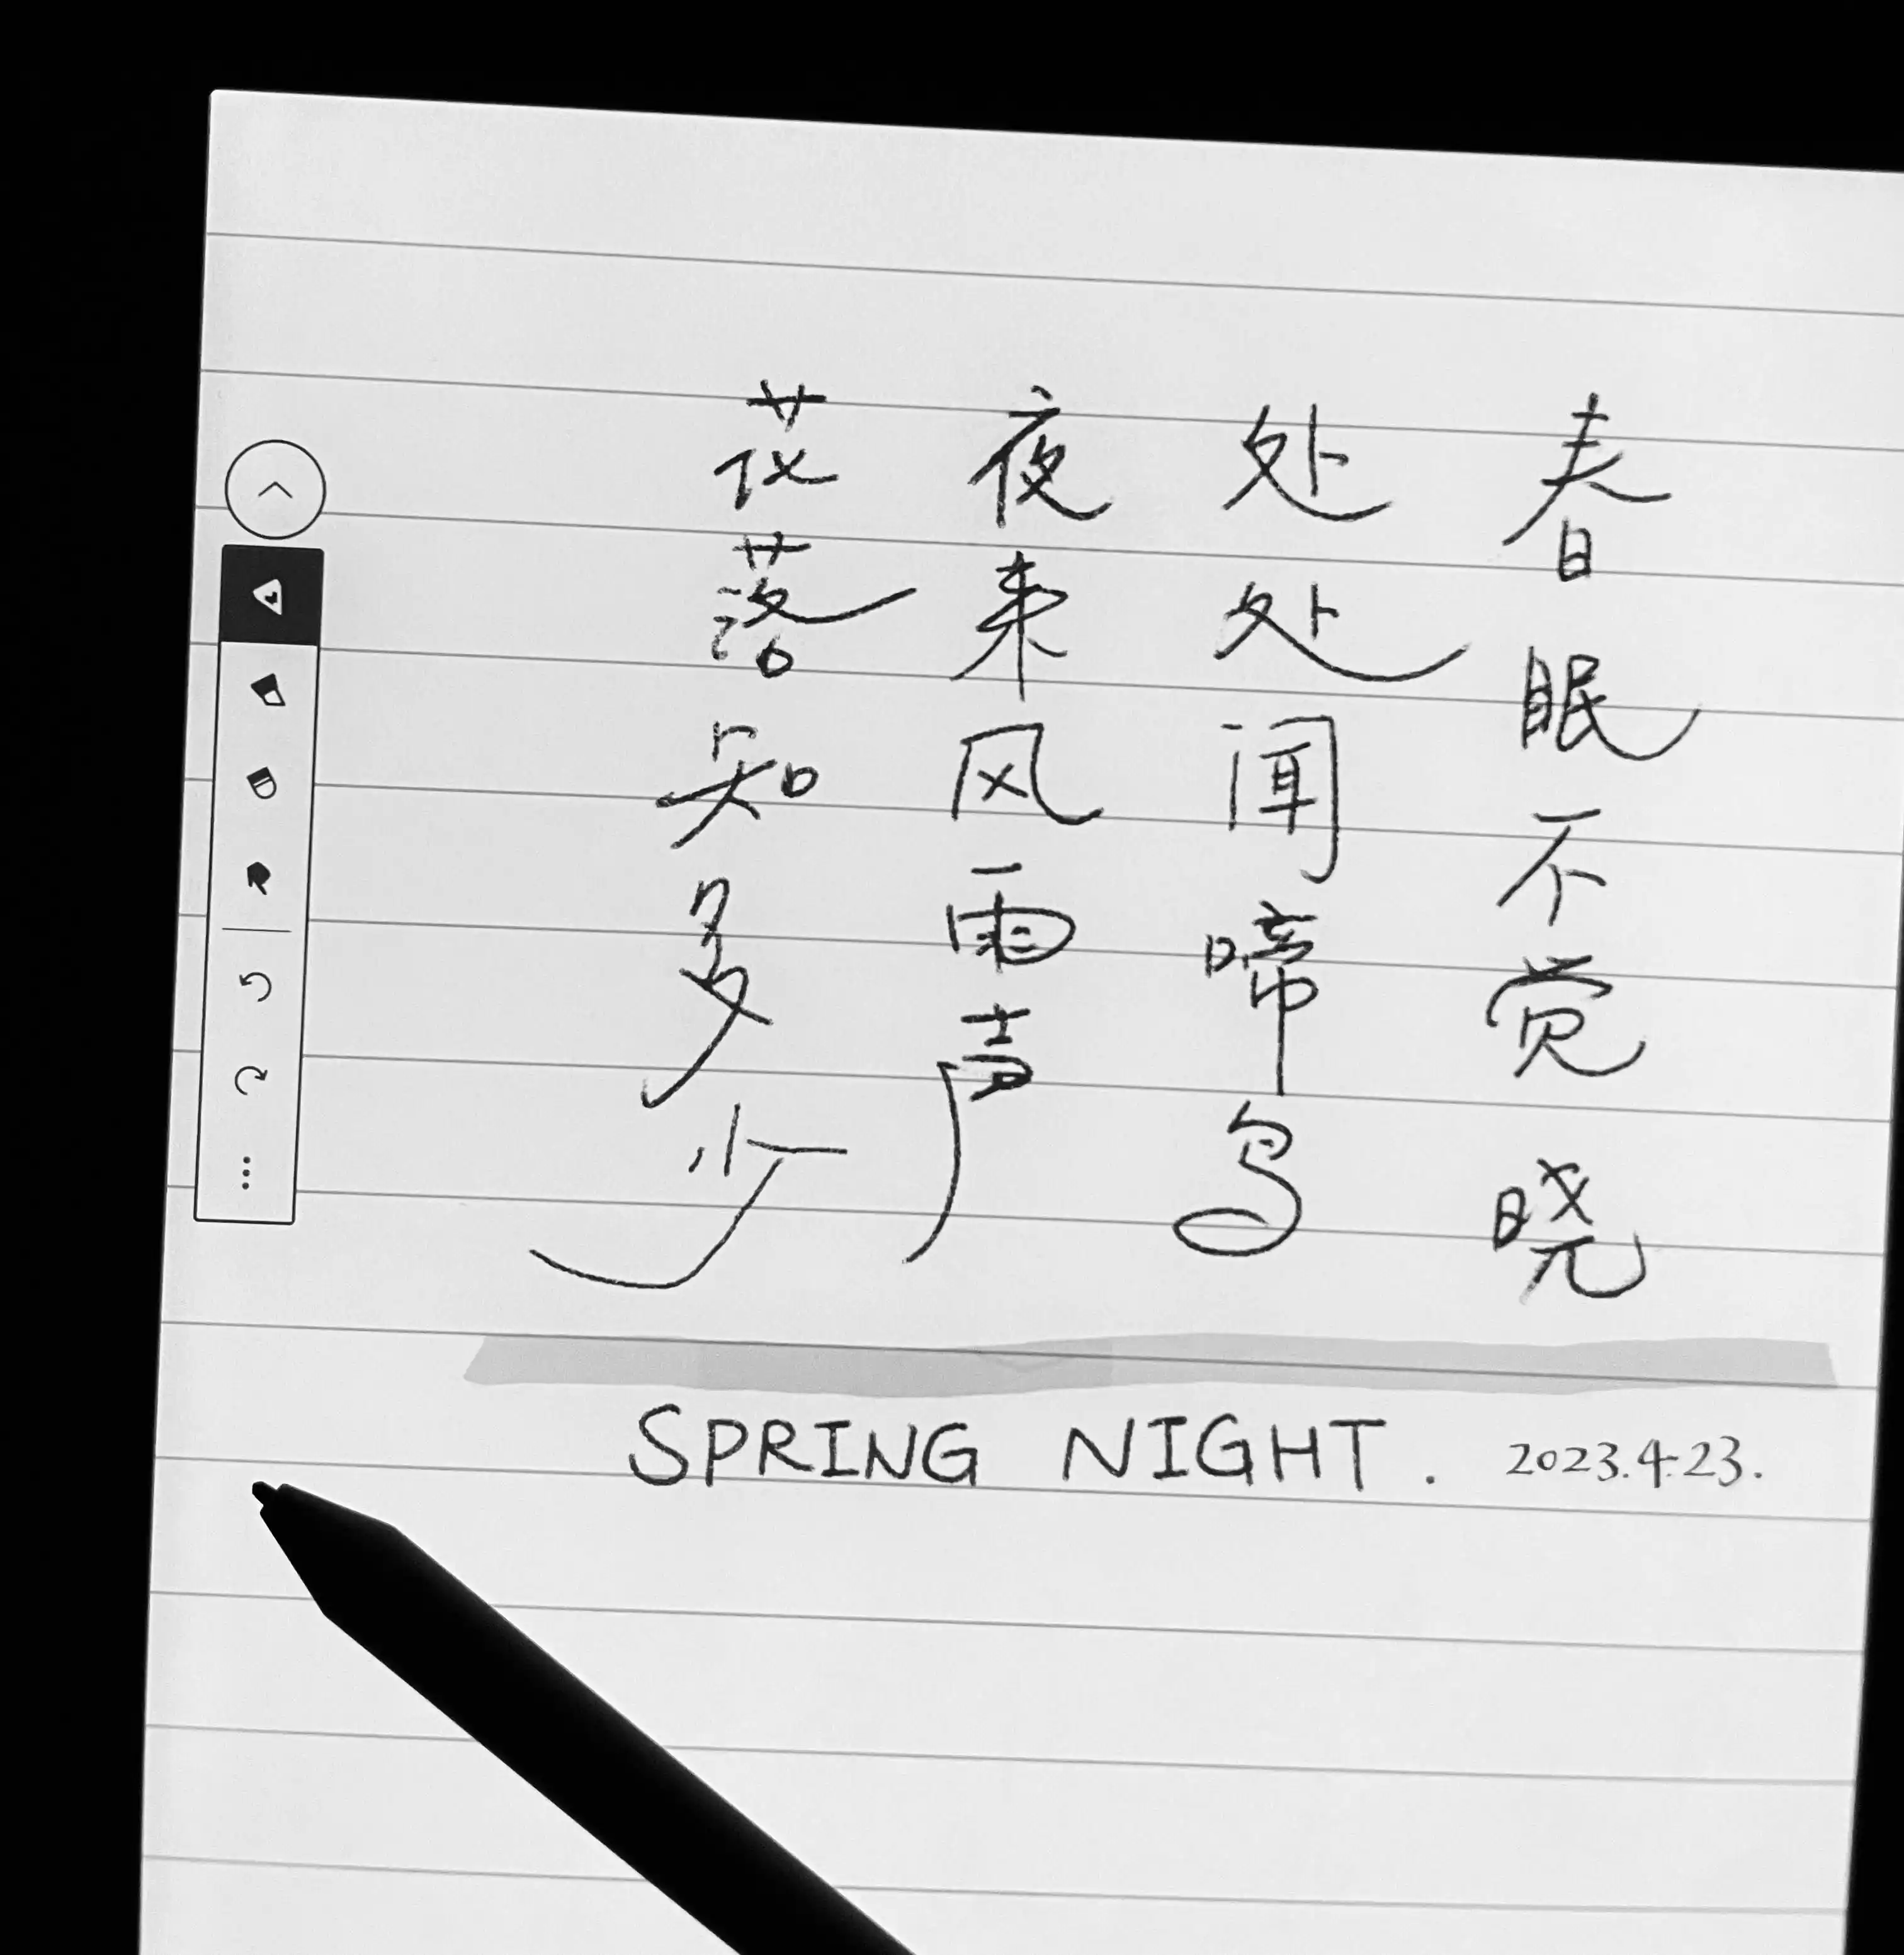 春眠不觉晓
处处闻啼鸟
夜来风雨声
花落知多少
SPRING NIGHT. 2023.4.23.